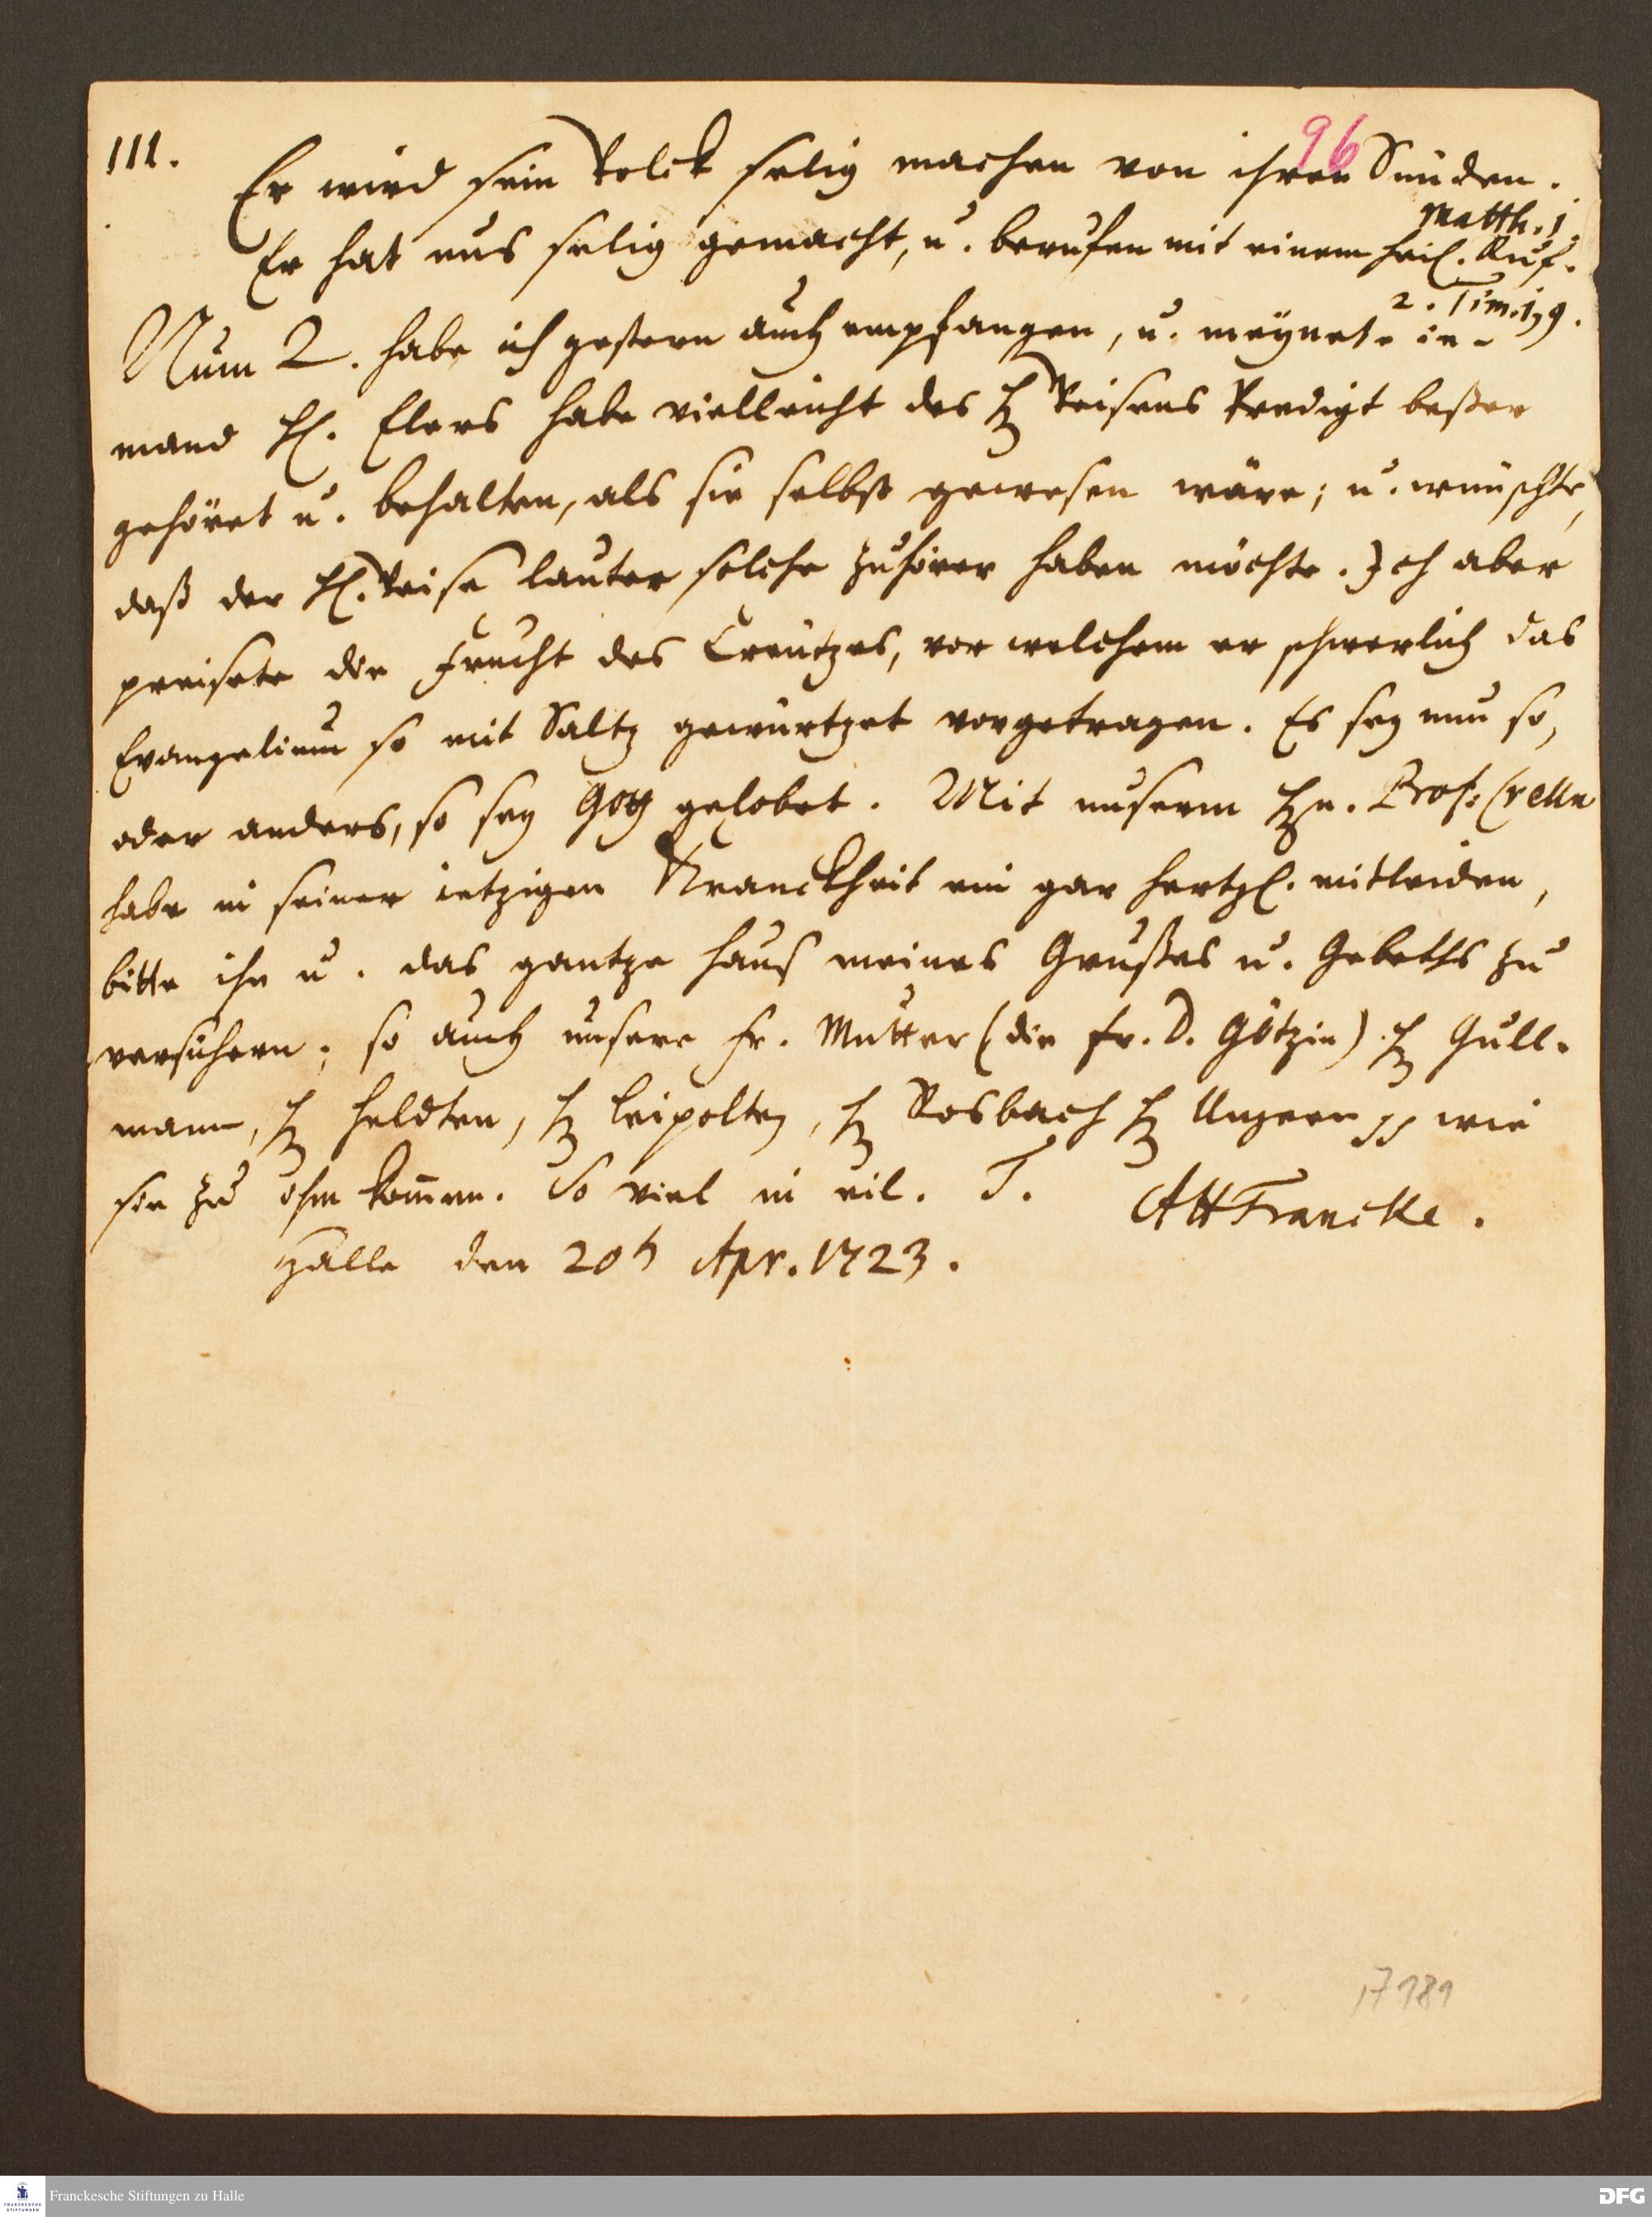 96
III.
Er wird sein Volck selig machen von ihren Sünden.
Matth. 1.
Er hat uns selig gemacht, u. berufen mit einem heil. Ruf.
2. Tim. 1, 9.
Num 2. habe ich gestern auch empfangen, u. meynete ie-
mand H. Elers habe vielleicht des H Weisens Predigt beßer
gehöret u. behalten, als sie selbst gewesen wäre; u. wünschte,
daß der H. Weise lauter solche Zuhörer haben möchte. Ich aber
preisete die Frucht des Creutzes, vor welchem er schwerlich das
Evangelium so mit Saltz gewürtzet vorgetragen. Es sey nun so,
oder anders, so sey Gott gelobet. Mit unserm Hn. Prof: Crelln
habe in seiner ietzigen Kranckheit ein gar hertzl. mitleiden,
bitte ihn u. das gantze Hauß meines Grußes u. Gebeths zu
versichern; so auch unsere Fr. Mutter (die Fr. D. Götzin) H Gull-
mann, H Heldten, H Leipolten, H Rosbach H Ungern wie
sie zu ihm kom̄en. So viel in eil. T.
AHFrancke.
Halle den 20 Apr. 1723.
17 189
Franckesche Stiftungen zu Halle
FRANCKESCHE STIFTUNGEN
DFG